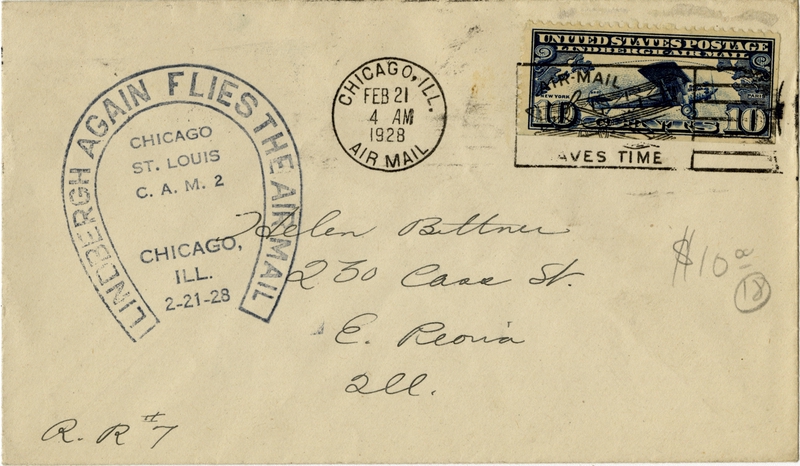 LINDBERGH AGAIN FLIES THE AIR MAIL
CHICAGO
ST. LOUIS
C. A. M. 2
CHICAGO,
ILL.
2-21-28
CHICAGO, ILL.
FEB 21
4 AM
1928
AIR MAIL
UNITED STATES POSTAGE
LINDBERGH AIR MAIL
AIR MAIL
NEW YORK
10 CENTS 10
SAVES TIME
Helen Bittner
230 Cass St.
E. Peoria
Ill.
R. R #7
$10
12